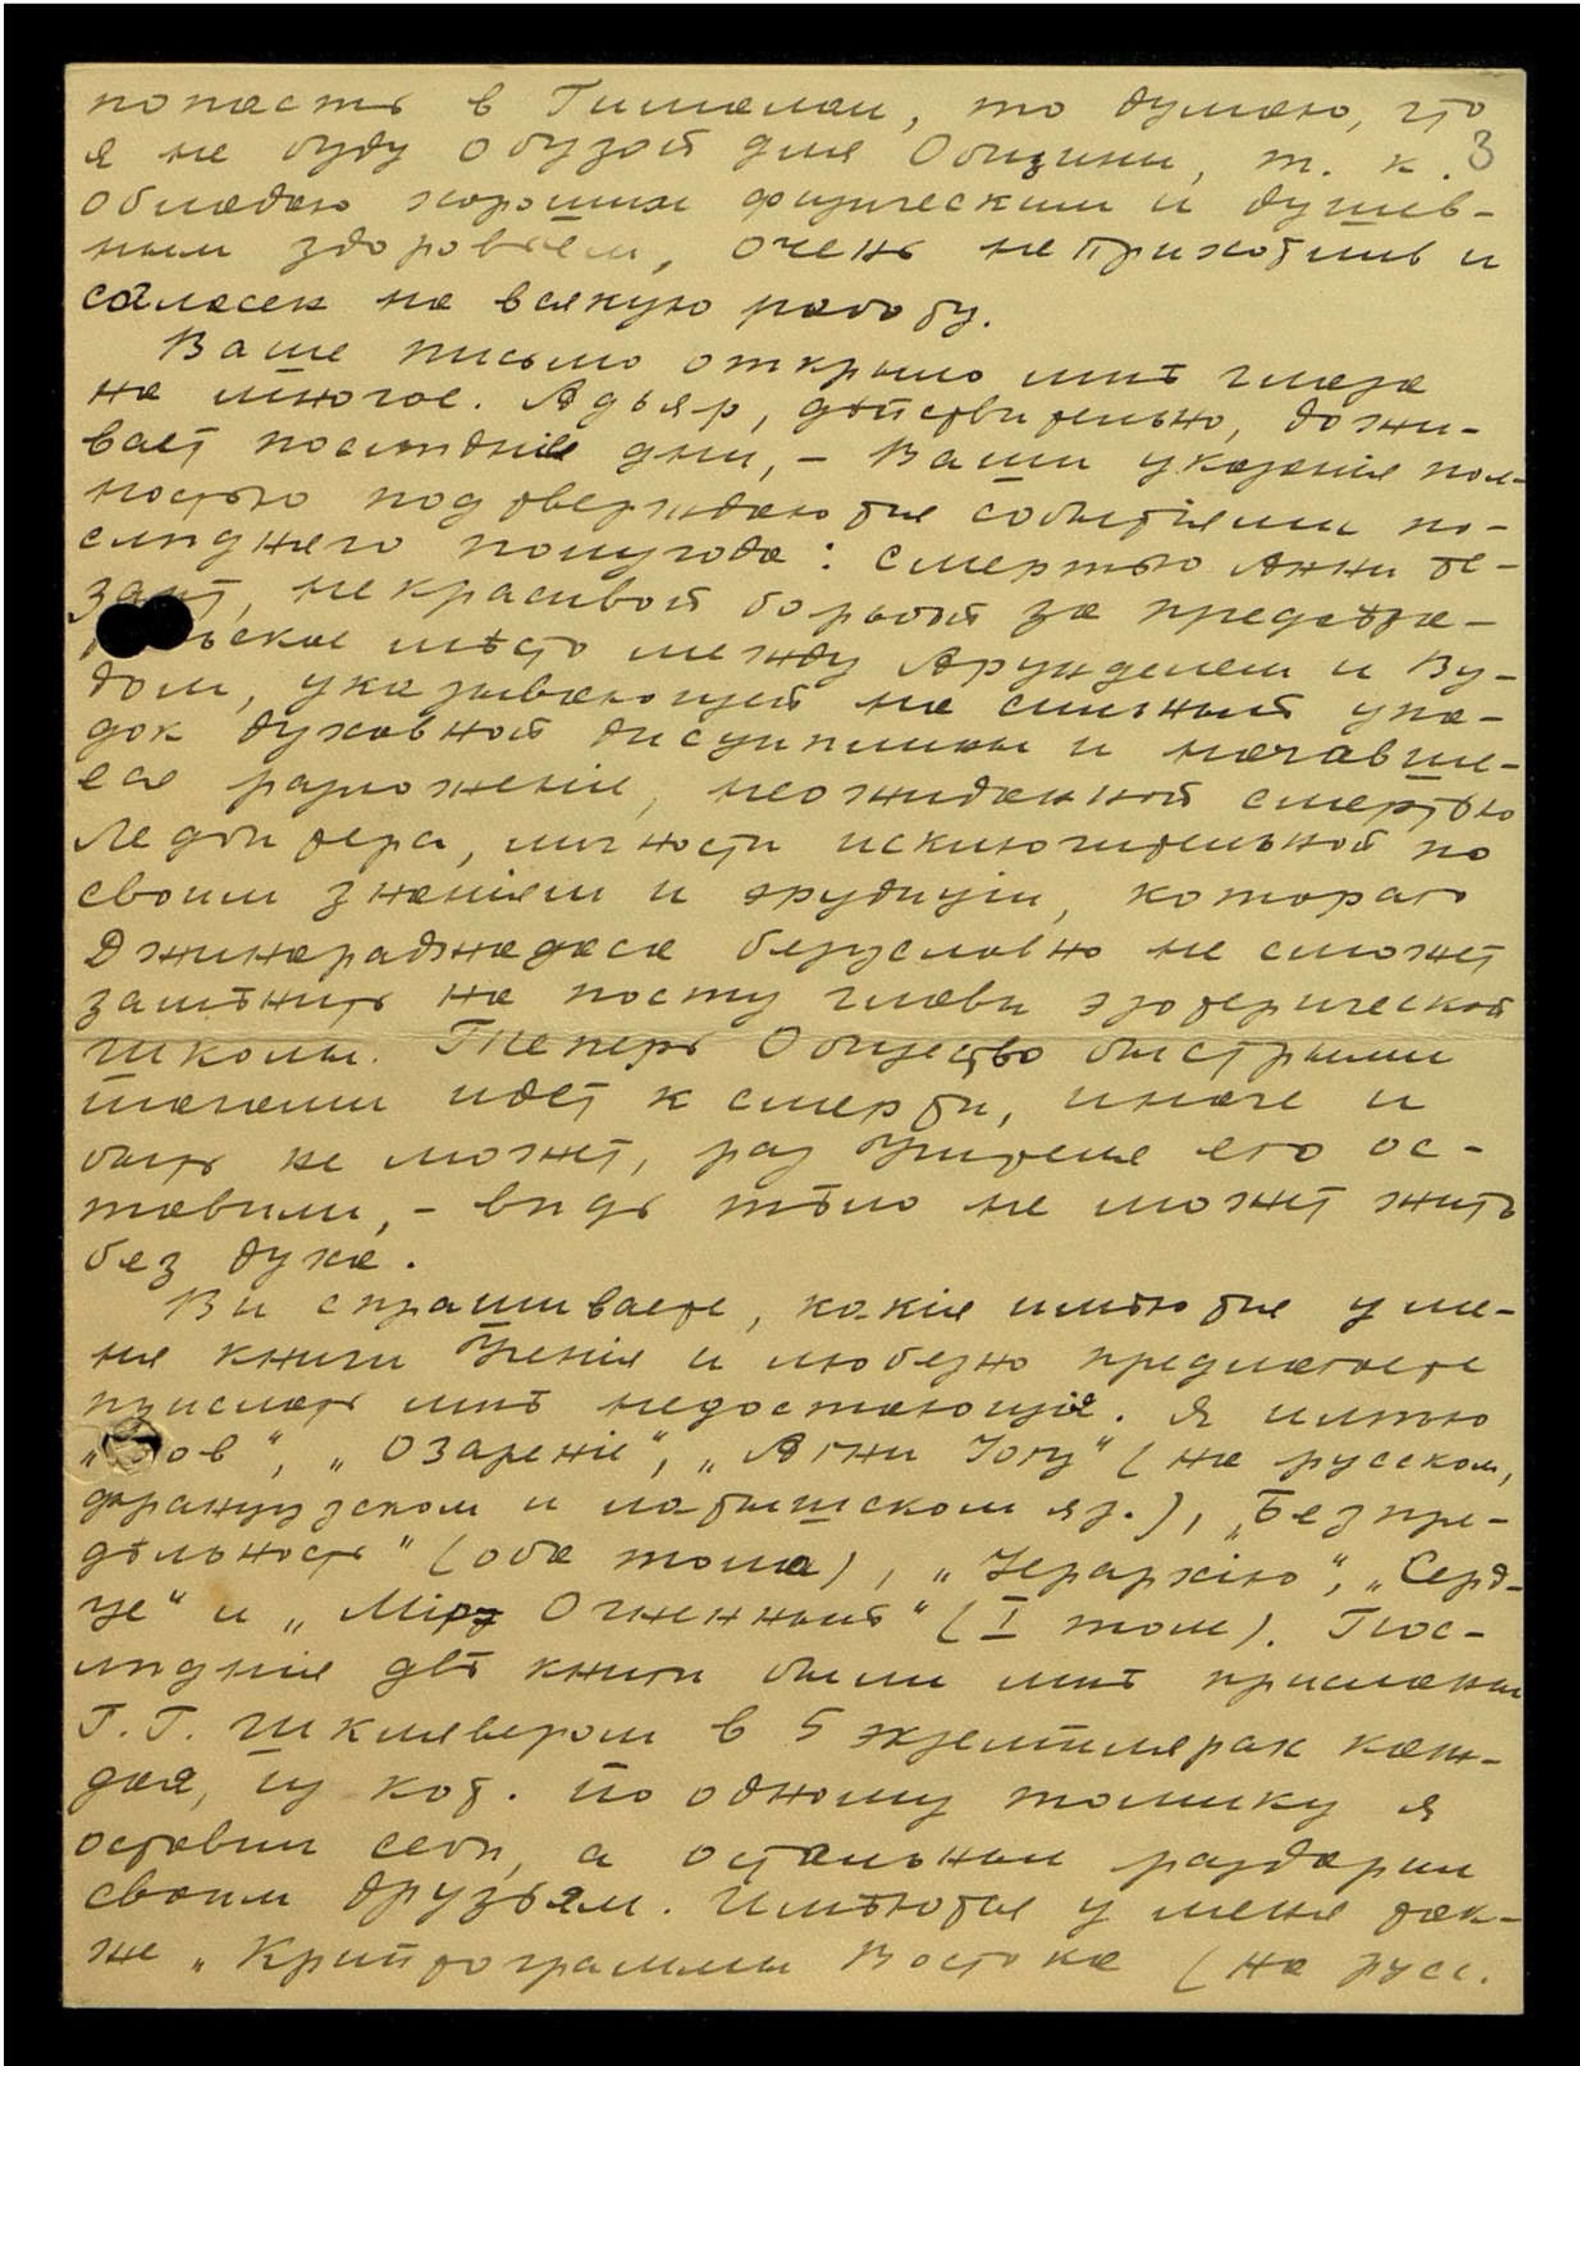 попасть в Гималаи, то думаю, что
3
я не буду обузой для Общины, т. к.
обладаю хорошим физическим и душев-
ным здоровьем, очень неприхотлив и
согласен на всякую работу.
Ваше письмо открыло мнѣ глаза
на многое. Адьяр, дѣйствительно, дожи-
вает послѣдніе дни, – Ваши указанія пол-
ностью подтверждаются событіями по-
слѣдняго полугода: смертью Анни Бе-
зант, некрасивой борьбой за предсѣда-
тельское мѣсто между Арунделем и Ву-
дом, указывающей на сильный упа-
док духовной дисциплины и начавше-
еся разложеніе, неожиданной смертью
Ледбитера, личности исключительной по
своим знаніям и эрудиціи, котораго
Джинараджадаса безусловно не сможет
замѣнить на посту главы эзотерической
школы. Теперь Общество быстрыми
шагами идет к смерти, иначе и
быть не может, раз Учителя его ос-
тавили, – вѣдь тѣло не может жить
без духа.
Вы спрашиваете, какія имѣются у ме-
ня книги Ученія и любезно предлагаете
прислать мнѣ недостающія. Я имѣю
„Зов“, „Озареніе“, „Агни Йогу“ (на русском,
французском и латышском яз.), „Безпре-
дѣльность“ (оба тома), „Іерархію“, „Серд-
це“ и „Мір Огненный“ (I том). Пос-
лѣднія двѣ книги были мнѣ присланы
Г. Г. Шклявером в 5 экземплярах каж-
дая, из кот. по одному томику я
оставил себѣ, а остальныя раздарил
своим друзьям. Имѣются у меня так-
же „Криптограммы Востока (на русс.